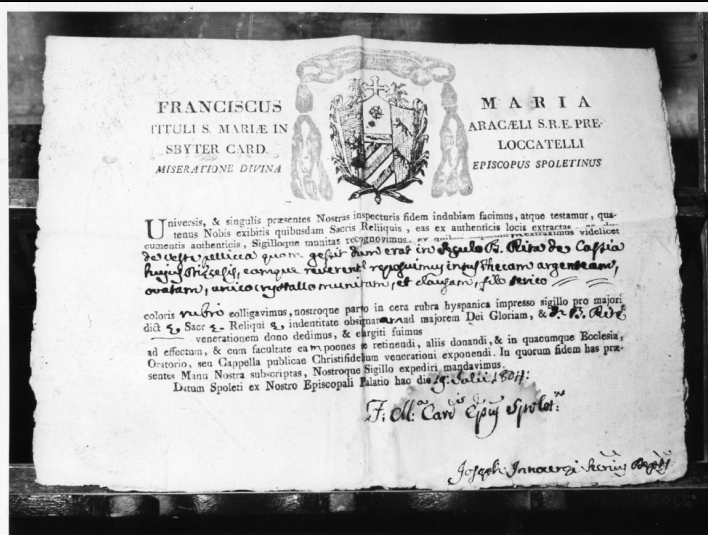 FRANCISCUS MARIA
TITULI S. MARIÆ IN ARACÆLI S.R.E. PRE-
SBYTER CARD. LOCCATELLI
MISERATIONE DIVINA EPISCOPUS SPOLETINUS
Universis, & singulis præsentes Nostras inspecturis fidem indubiam facimus, atque testamur, qua-
tenus Nobis exibitis quibusdam Sacris Relliquiis, eas ex authenticis locis extractas
cumentis authenticis, Sigilloque munitas recognovimus, ex quibus extraximus videlicet
de veste pellicea quam gessit dum erat in Sęculo B. Rita de Cassia
hujus Diœcesis, eamque reverentr reposuimus intus thecam argenteam,
ovatam, unico crystallo munitam, et clausam, filo serico
coloris rubro colligavimus, nostroque parvo in cera rubra hyspanica impresso sigillo pro majori
dict ę Sacr ę Reliqui ę indentitate obsignavimus ad majorem Dei Gloriam, & B. Ritę
venerationem dono dedimus, & elargiti fuimus
ad effectum, & cum facultate eam poenes se retinendi, aliis donandi, & in quacumque Ecclesia,
Oratorio, seu Cappella publicae Christifidelium venerationi exponendi. In quorum fidem has præ-
sentes Manu Nostra subscriptas, Nostroque Sigillo expediri mandavimus.
Datum Spoleti ex Nostro Episcopali Palatio hac die 19. Julii 1804:
F: M:a Card: Epus Spolet:
Joseph Innocenzi